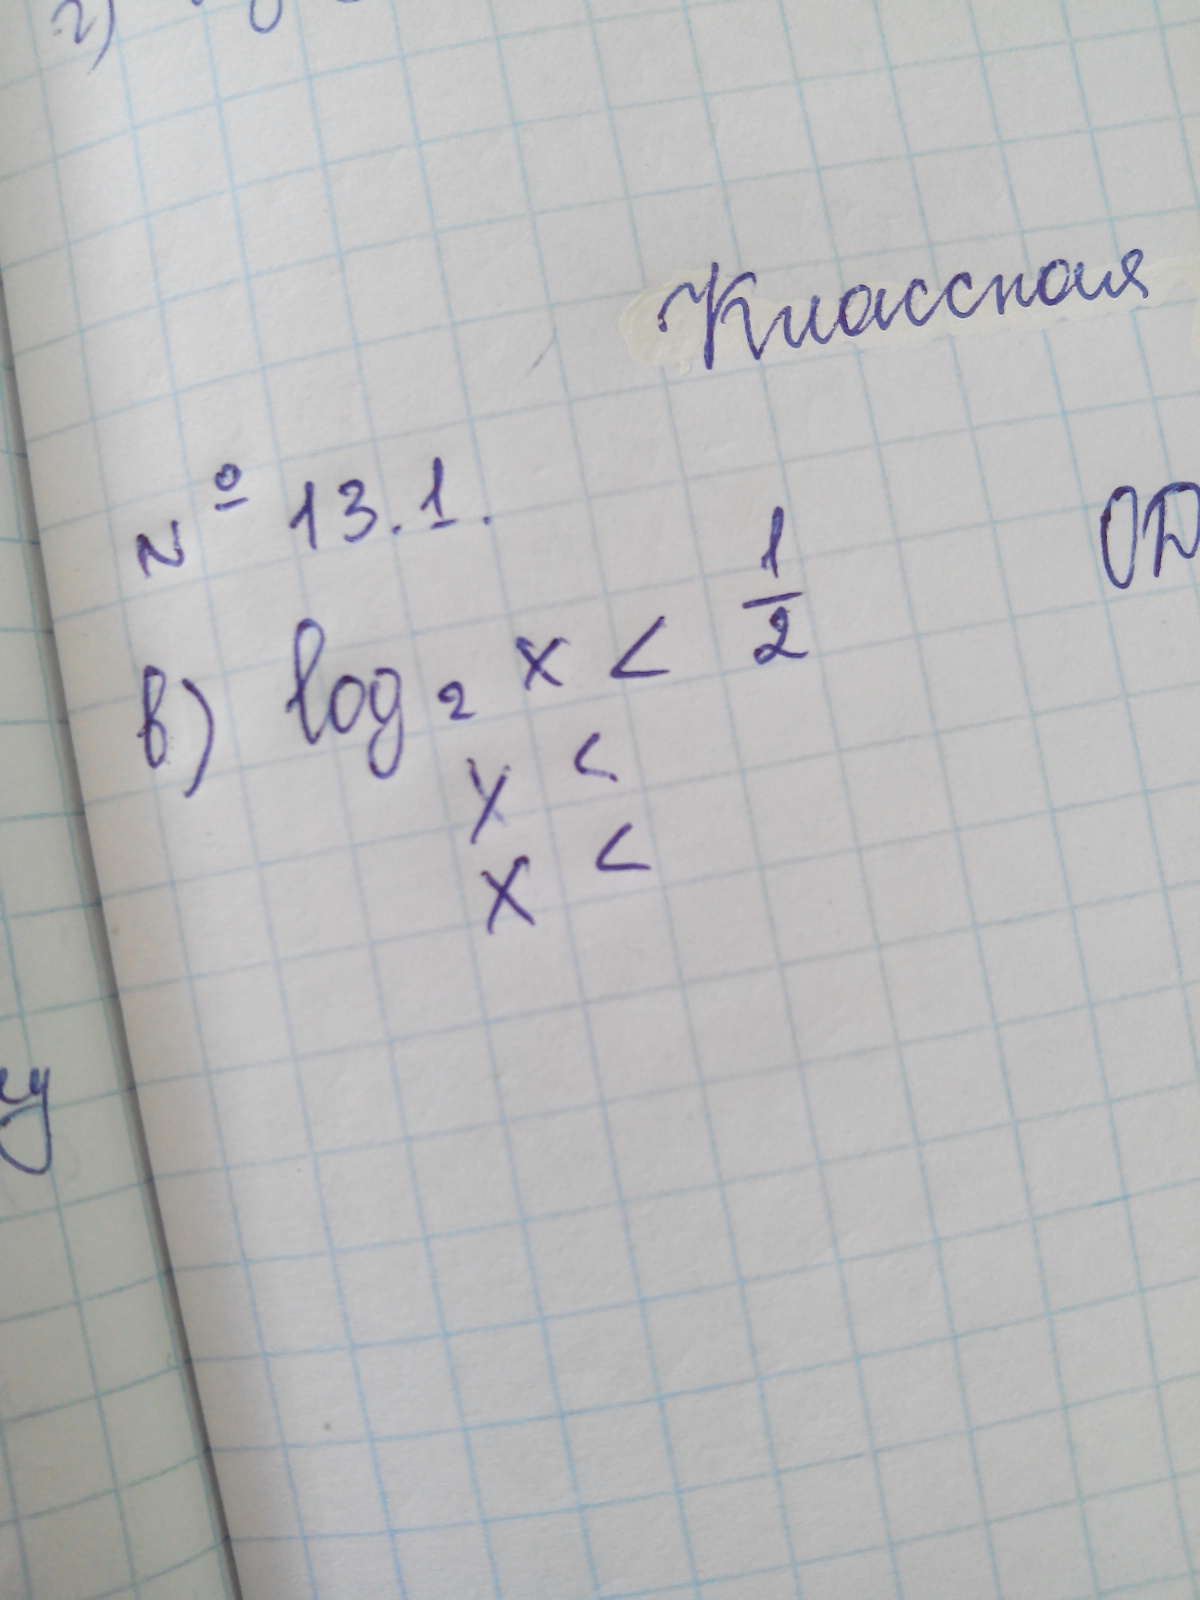 2)
Классная
№ 13.1.
ОД
в) log₂ x < 1/2
x <
x <